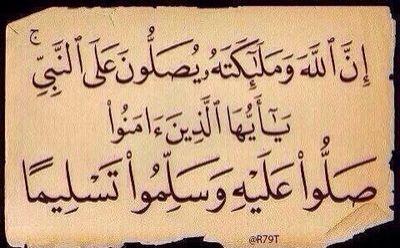 إِنَّ ٱللَّهَ وَمَلَٰٓئِكَتَهُۥ يُصَلُّونَ عَلَى ٱلنَّبِىِّ ۚ
يَٰٓأَيُّهَا ٱلَّذِينَ ءَامَنُوا۟
صَلُّوا۟ عَلَيْهِ وَسَلِّمُوا۟ تَسْلِيمًا
@R79T